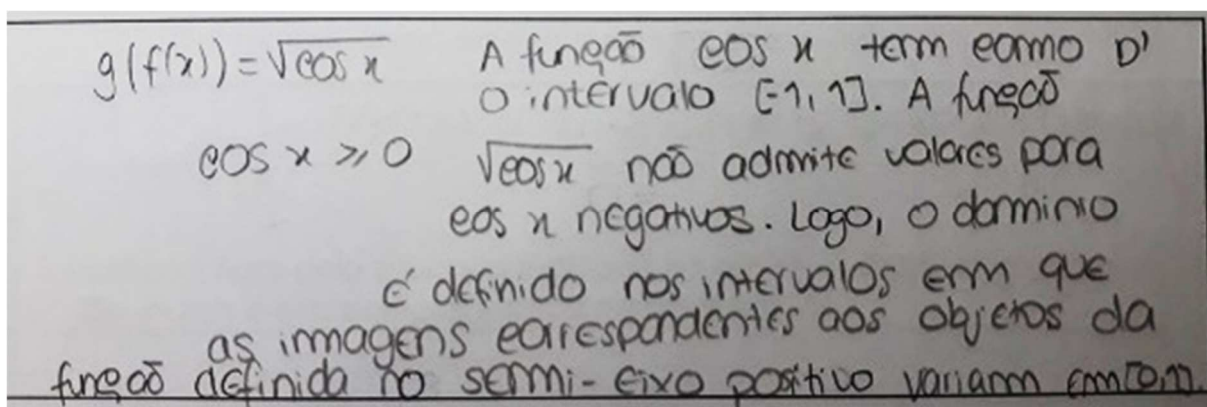 g(f(x)) = √cos x A função cos x tem como D'
o intervalo [-1, 1]. A função
cos x ⩾ 0 √cos x não admite valores para
cos x negativos. Logo, o domínio
é definido nos intervalos em que
as imagens correspondentes aos objetos da
função definida no semi-eixo positivo variam em [0,1].